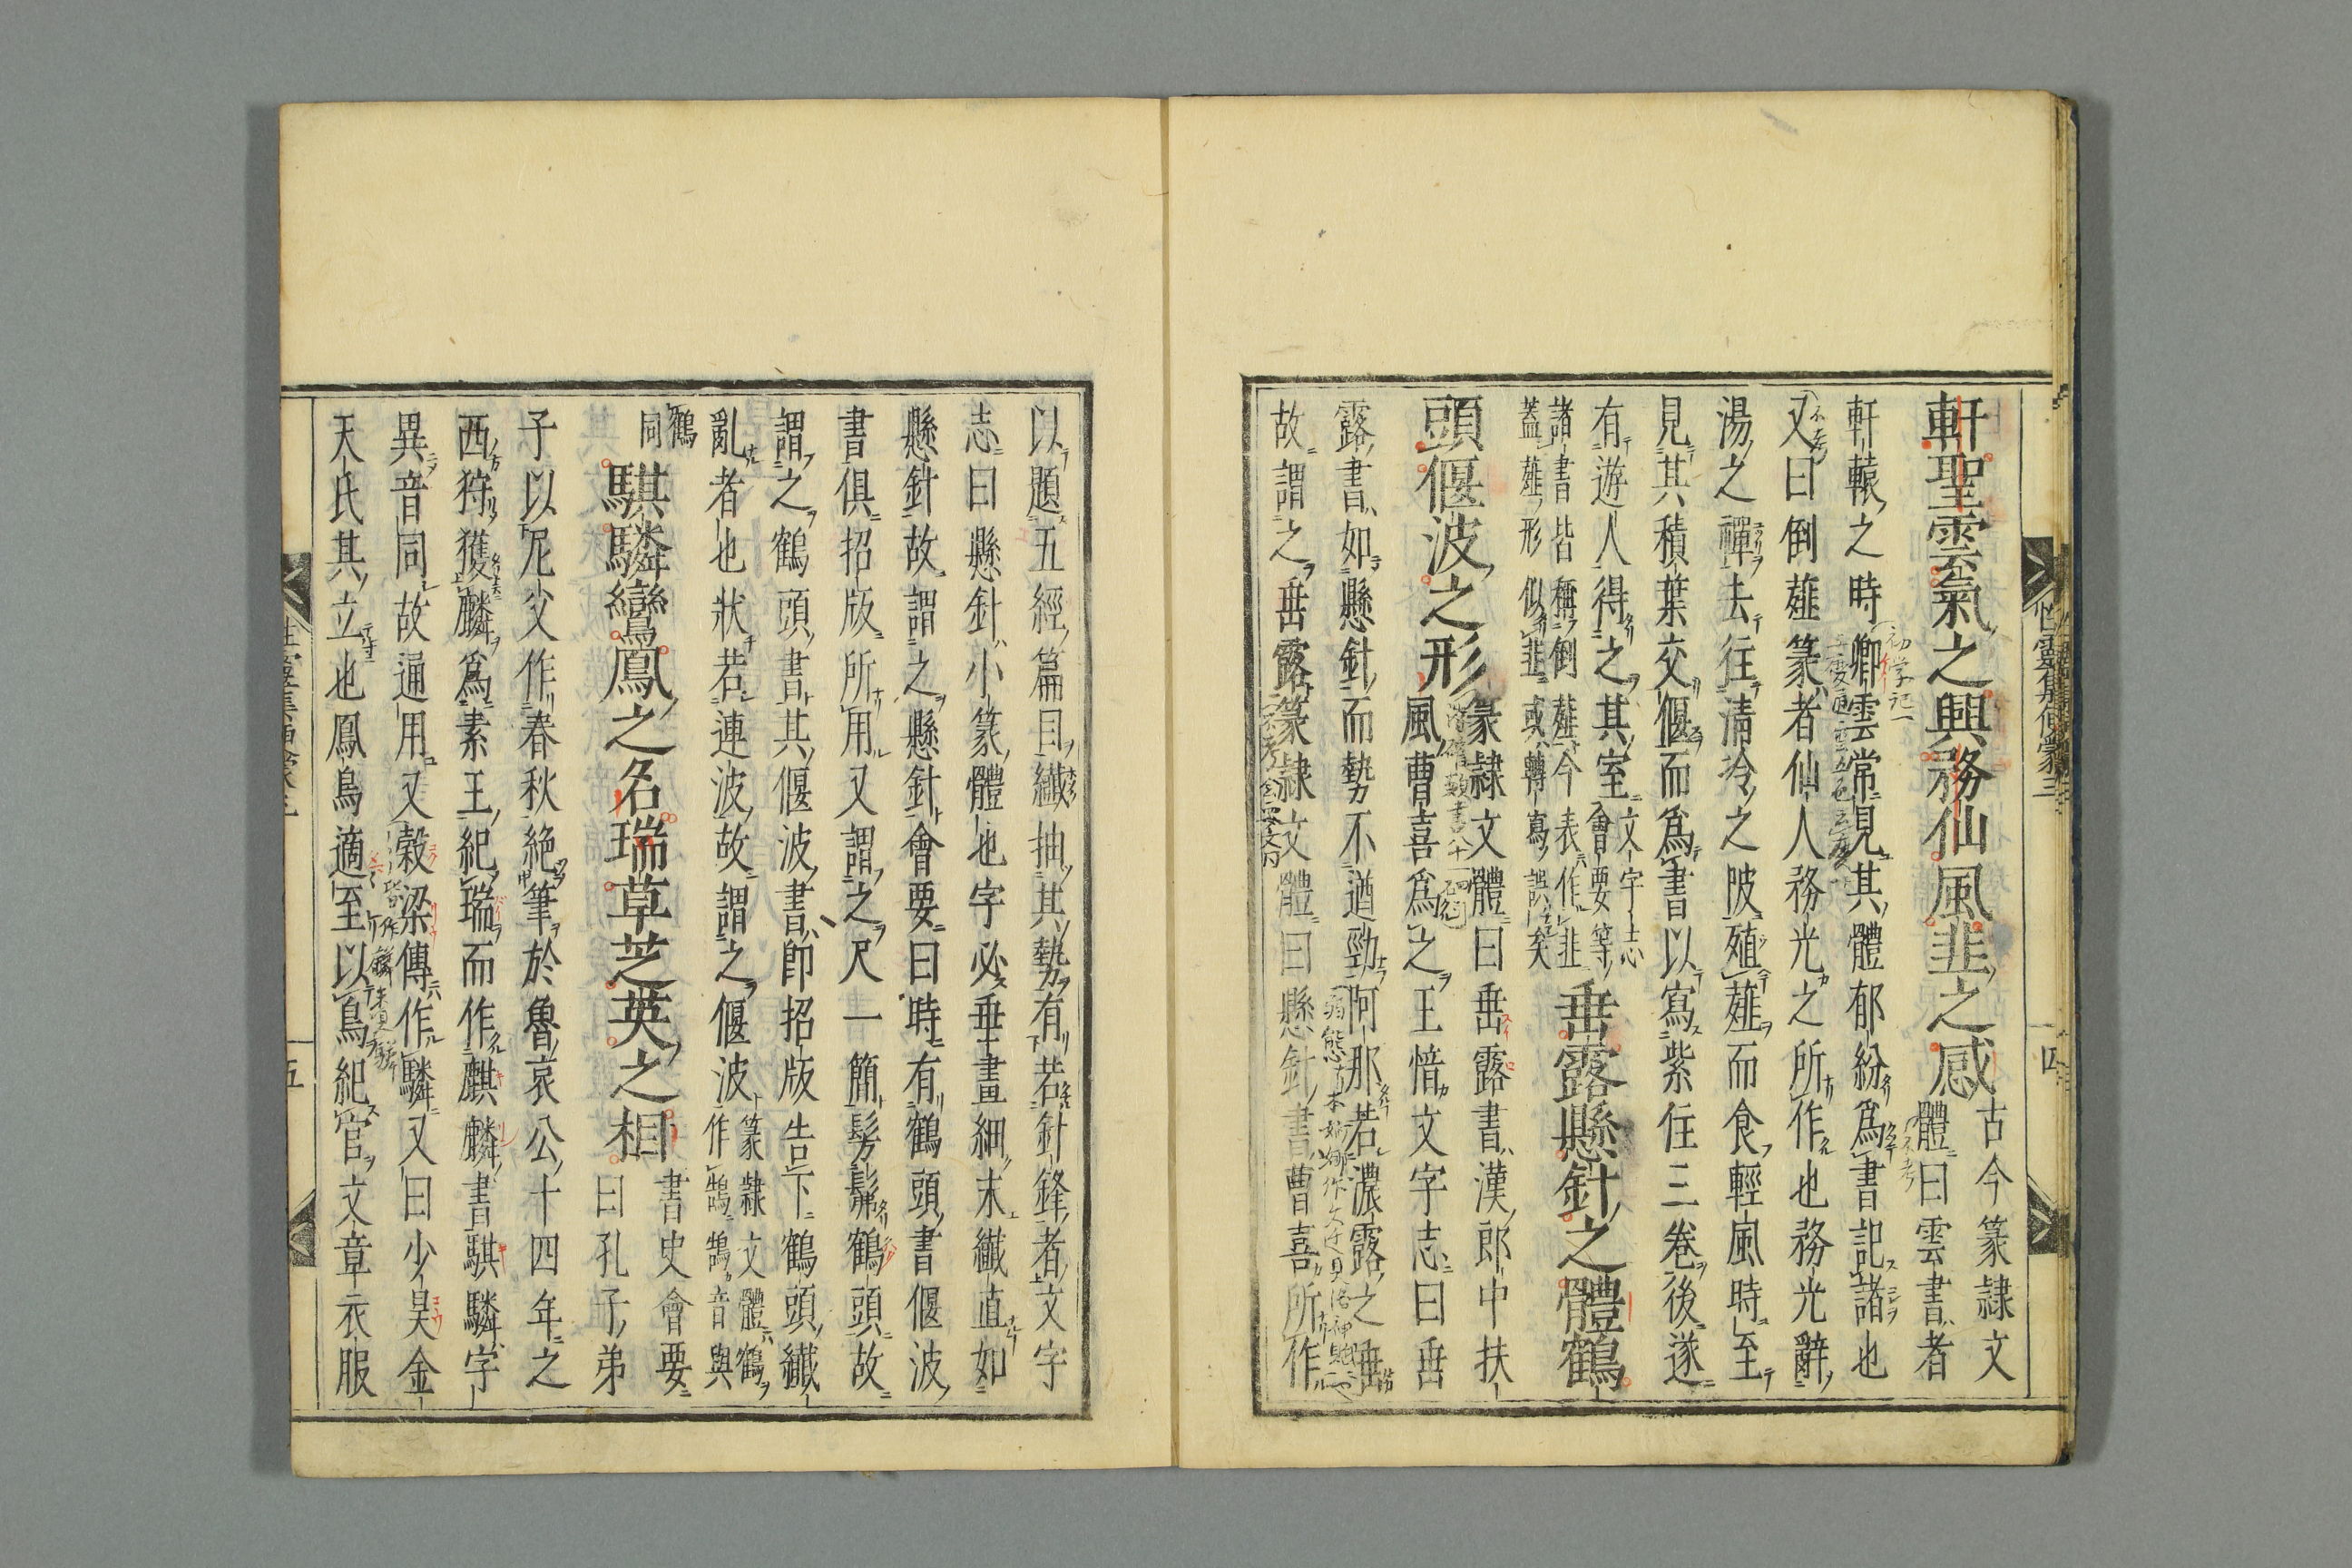 軒聖雲氣之興務仙風韭之感 古今篆隷文
體曰雲書者
軒轅之時卿雲常見其體郁紛爲書記諸也
又曰倒薤篆者仙人務光之所作也務光辭
湯之禪去往清冷之陂殖薤而食輕風時至
見其積葉交偃而爲書以寫紫住三卷後遂
有遊人得之其室 文字志
會要等
諸書皆稱倒薤今表作韭
蓋薤形似韭或轉寫誤矣
垂露懸針之體鶴
頭偃波之形 篆隷文體曰垂露書漢郎中扶
風曹喜爲之王愔文字志曰垂
露書如懸針而勢不遒勁阿那若濃露之垂
故謂之垂露篆隷文體曰懸針書曹喜所作
以題五經篇目纎抽其勢有若針鋒者文字
志曰懸針小篆體也字必垂畫細末纎直如
懸針故謂之懸針會要曰時有鶴頭書偃波
書俱招版所用又謂之尺一簡髣髴鶴頭故
謂之鶴頭書其偃波書卽招版告下鶴頭纎
亂者也狀若連波故謂之偃波 篆隷文體鶴
作鵠鵠音與
鶴
同
騏驎鸞鳳之名瑞草芝英之相 書史會要
曰孔子弟
子以尼父作春秋絶筆於魯哀公十四年之
西狩獲麟爲素王紀瑞而作麒麟書騏驎字
異音同故通用又穀梁傳作驎又曰少昊金
天氏其立也鳳鳥適至以鳥紀官文章衣服
四
五